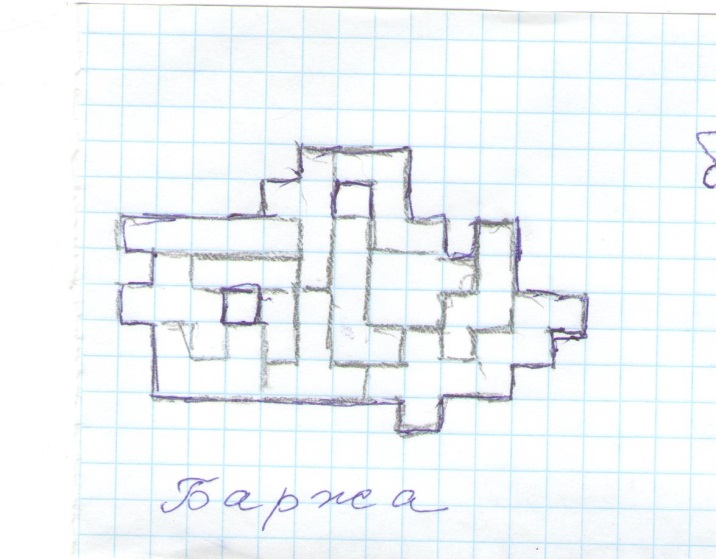 Баржа